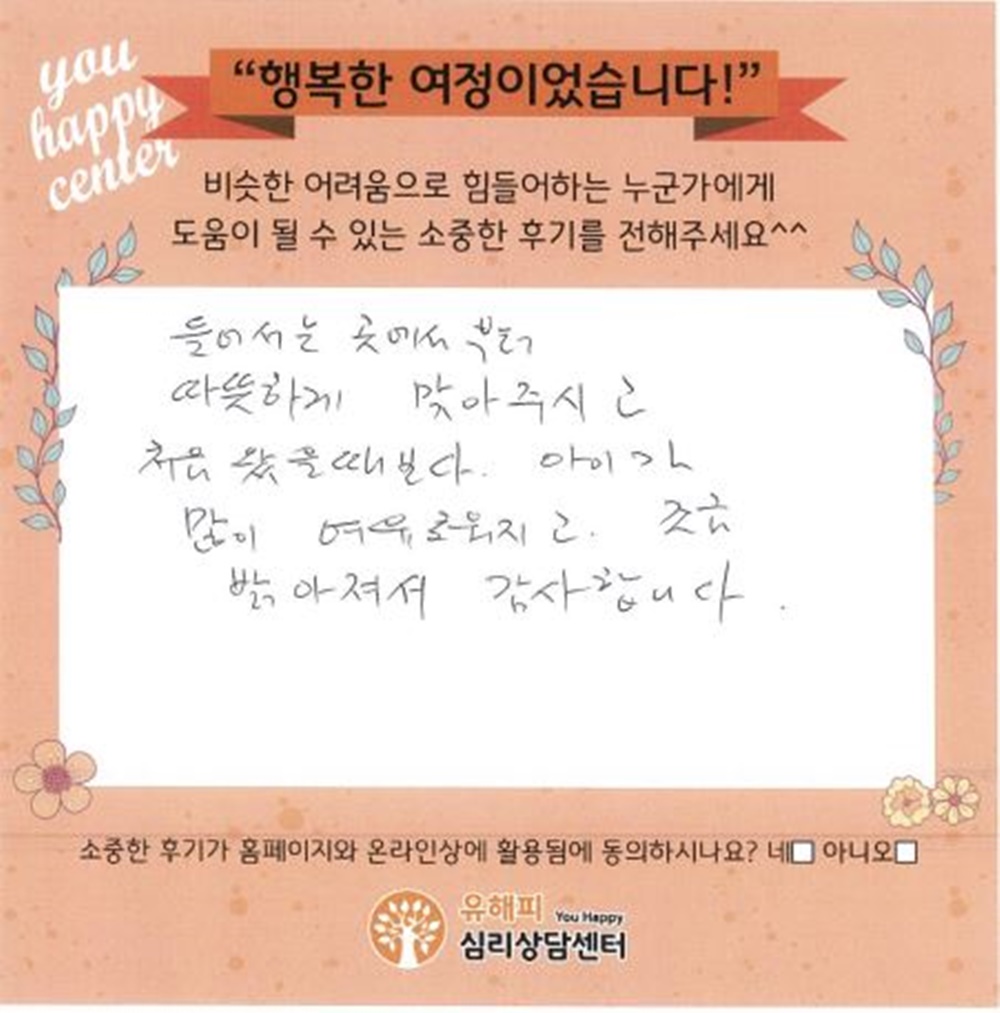 you
happy
center
“행복한 여정이었습니다!”
비슷한 어려움으로 힘들어하는 누군가에게
도움이 될 수 있는 소중한 후기를 전해주세요^^
들어서는 곳에서부터
따뜻하게 맞아주시고
처음 왔을때보다. 아이가
많이 여유로워지고. 조금
밝아져서 감사합니다.
소중한 후기가 홈페이지와 온라인상에 활용됨에 동의하시나요? 네□ 아니오□
유해피 You Happy
심리상담센터